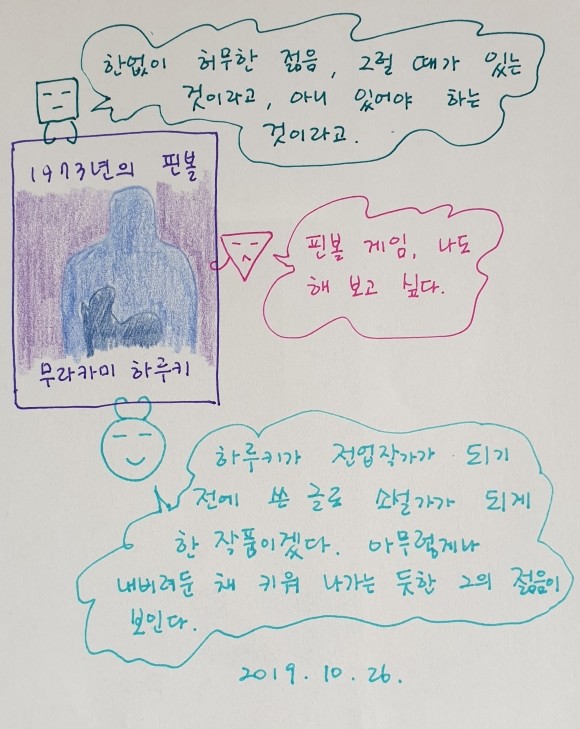 한없이 허무한 젊음, 그럴 때가 있는
것이라고, 아니 있어야 하는
것이라고.
1973년의 핀볼
핀볼 게임, 나도
해 보고 싶다.
무라카미 하루키
하루키가 전업작가가 되기
전에 쓴 글로 소설가가 되게
한 작품이겠다. 아무렇게나
내버려둔 채 키워 나가는 듯한 그의 젊음이
보인다.
2019. 10. 26.